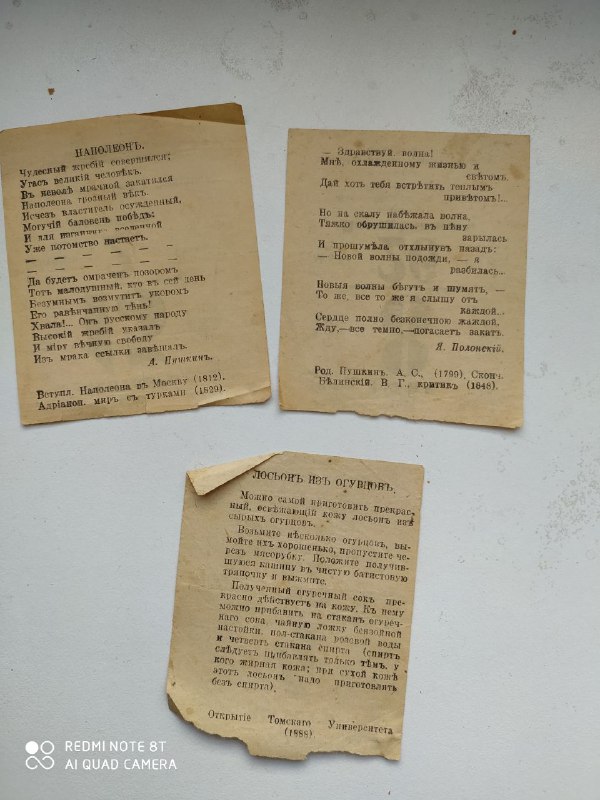 НАПОЛЕОНЪ.
Чудесный жребій совершился;
Угасъ великій человѣкъ.
Въ неволѣ мрачной закатился
Наполеона грозный вѣкъ.
Исчезъ властитель осужденный,
Могучій баловень побѣдъ:
И для изгнанника вселенной
Уже потомство настаетъ.
— — — — — — —
— — — — — — —
Да будетъ омраченъ позоромъ
Тотъ малодушный, кто въ сей день
Безумнымъ возмутитъ укоромъ
Его развѣнчанную тѣнь!
Хвала!... Онъ русскому народу
Высокій жребій указалъ
И міру вѣчную свободу
Изъ мрака ссылки завѣщалъ.
А. Пушкинъ.
Вступл. Наполеона въ Москву (1812).
Адріаноп. миръ съ турками (1829).
— Здравствуй, волна!
Мнѣ, охлажденному жизнью и
свѣтомъ,
Дай хоть тебя встрѣтить теплымъ
привѣтомъ!...
Но на скалу набѣжала волна,
Тяжко обрушилась, въ пѣну
зарылась
И прошумѣла отхлынувъ назадъ:
— Новой волны подожди, — я
разбилась...
Новыя волны бѣгутъ и шумятъ, —
То же, все то же я слышу отъ
каждой...
Сердце полно безконечною жаждой,
Жду,—все темно,—погасаетъ закатъ.
Я. Полонскій.
Род. Пушкинъ. А. С., (1799). Сконч.
Бѣлинскій. В. Г., критикъ (1848).
ЛОСЬОНЪ ИЗЪ ОГУРЦОВЪ.
Можно самой приготовить прекрас-
ный, освѣжающій кожу лосьонъ изъ
сырыхъ огурцовъ.
Возьмите нѣсколько огурцовъ, вы-
мойте ихъ хорошенько, пропустите че-
резъ мясорубку. Положите получив-
шуюся кашицу въ чистую батистовую
тряпочку и выжмите.
Полученный огуречный сокъ пре-
красно дѣйствуетъ на кожу. Къ нему
можно прибавить на стаканъ огуреч-
наго сока, чайную ложку бензойной
настойки, пол-стакана розовой воды
и четверть стакана спирта (спиртъ
слѣдуетъ прибавлять только тѣмъ, у
кого жирная кожа; при сухой кожѣ
этотъ лосьонъ надо приготовлять
безъ спирта).
Открытіе Томскаго Университета
(1888).
REDMI NOTE 8T
AI QUAD CAMERA